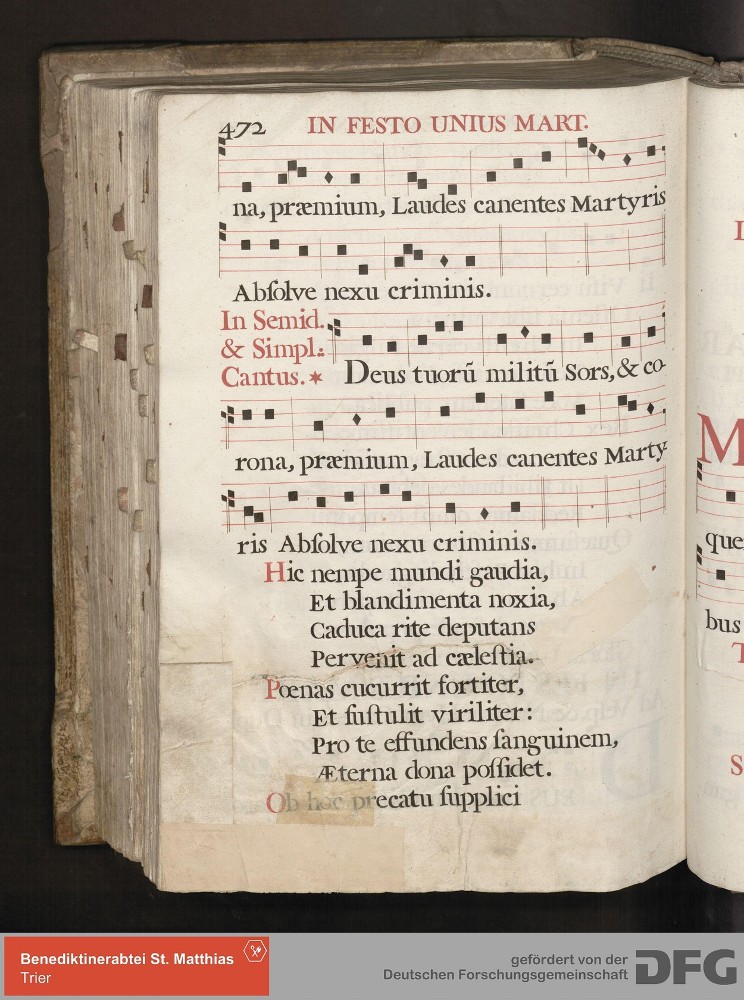 472 IN FESTO UNIUS MART.
na, præmium, Laudes canentes Martyris
Abſolve nexu criminis.
In Semid.
& Simpl.
Cantus. * Deus tuorū militū Sors, & co-
rona, præmium, Laudes canentes Marty-
ris Abſolve nexu criminis.
Hic nempe mundi gaudia,
Et blandimenta noxia,
Caduca rite deputans
Pervenit ad cæleſtia.
Pœnas cucurrit fortiter,
Et ſuſtulit viriliter:
Pro te effundens ſanguinem,
Æterna dona poſſidet.
Ob hoc precatu ſupplici
M
que
bus
T
S
Benediktinerabtei St. Matthias
Trier
gefördert von der
Deutschen Forschungsgemeinschaft
DFG